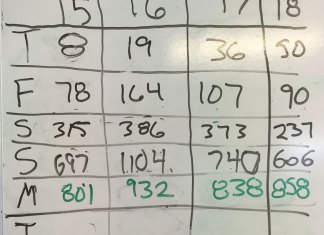 15 16 17 18
T 8 19 36 50
F 78 164 107 90
S 315 386 373 237
S 697 1104 740 606
M 801 932 838 858
T